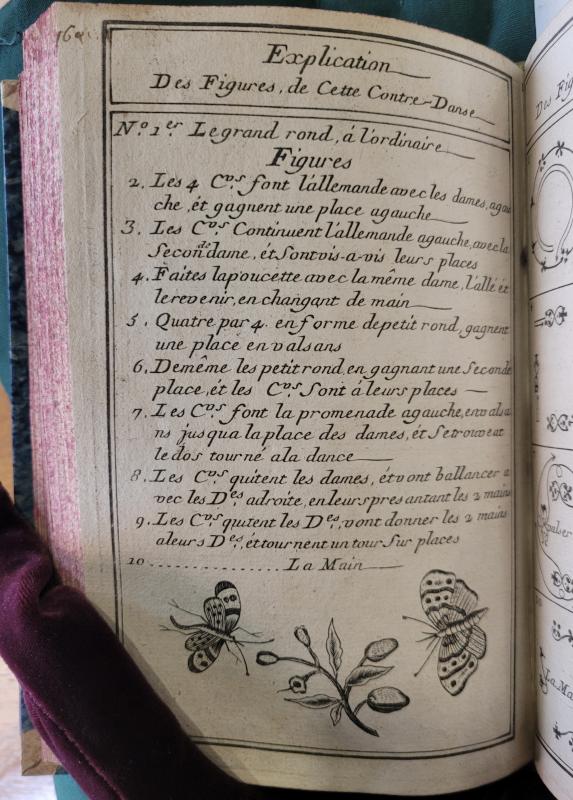 Explication
Des Figures, de Cette Contre-Danse
N.o 1.er Le grand rond, á l'ordinaire
Figures
2. Les 4 C.vs font l'allemande avec les dames, agau
che, ét gagnent une place agauche
3. Les C.vs Continuent l'allemande agauche, avec la
Secon.de dame, ét sont vis-a-vis leurs places
4. Faites lapoucette avec la même dame, l'allé ét
le revenir, en changant de main
5. Quatre par 4. en forme de petit rond, gagnent
une place en valsans
6. Demême les petit rond, en gagnant une Seconde
place, ét les C.vs Sont á leurs places
7. Les C.vs font la promenade agauche, en valsa
ns jusqua la place des dames, ét Se trouve at
le dos tourné ala dance
8. Les C.vs quitent les dames, ét vont ballancer a
vec les D.es adroite, en leurs pres antant les 2 mains
9. Les C.vs quitent les D.es, vont donner les 2 mains
a leurs D.es, ét tournent un tour Sur places
10 ................ La Main
Des Fig
La Ma